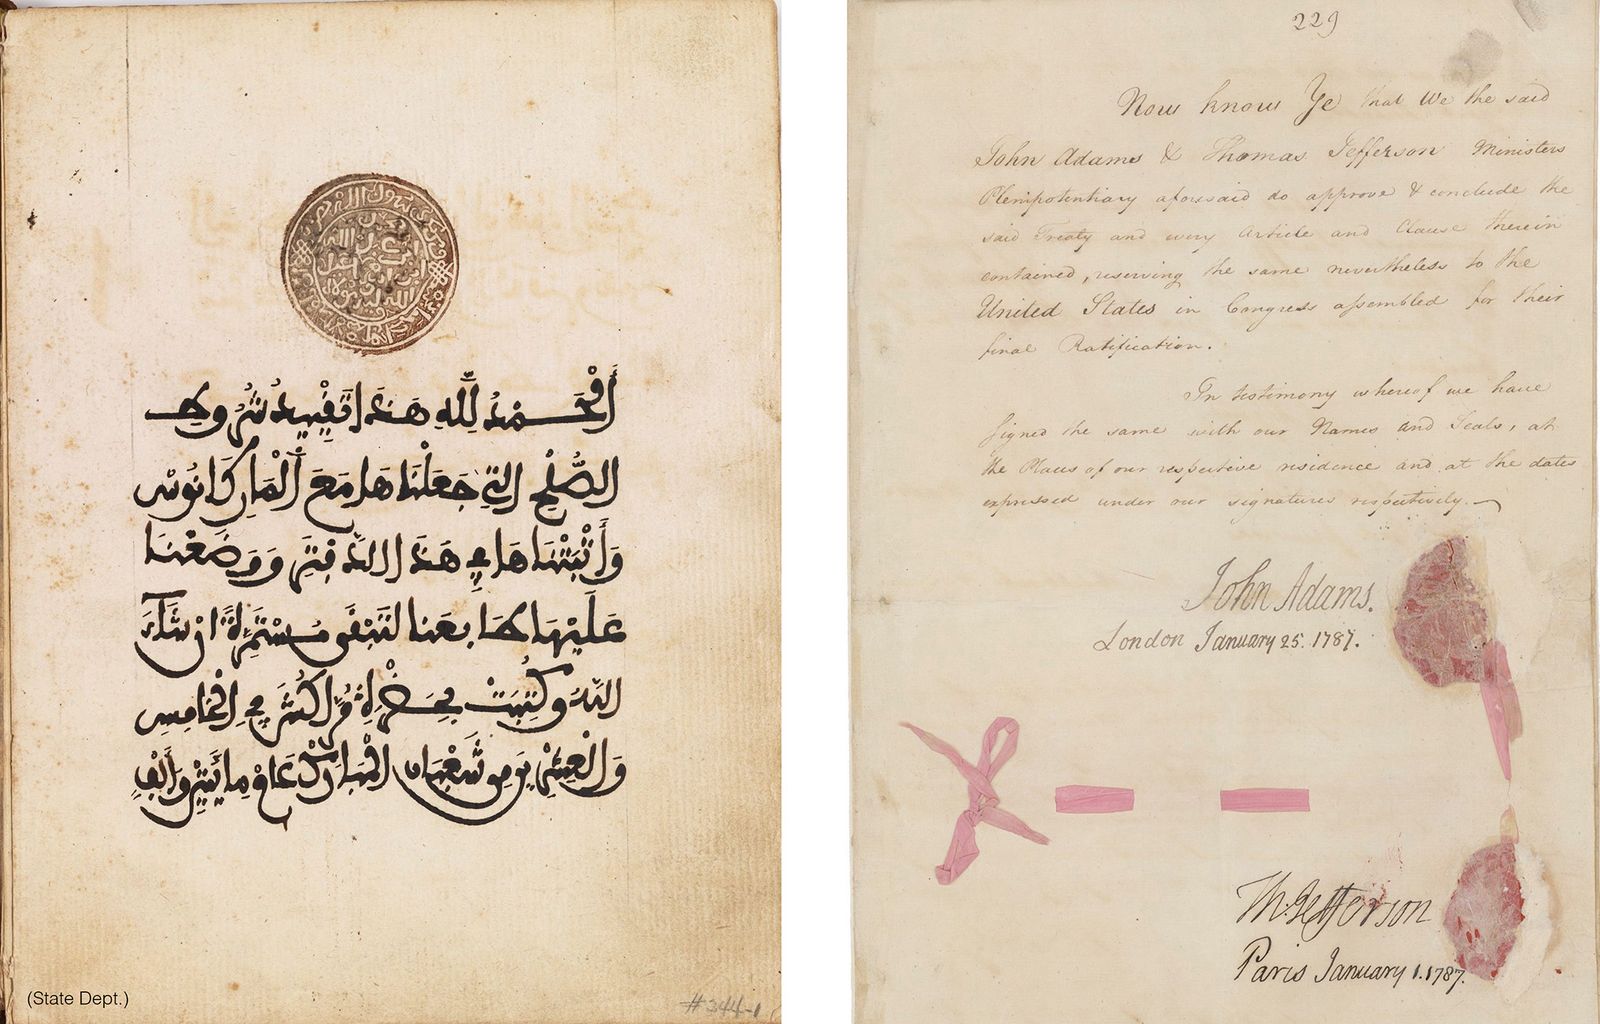 أَلْحَمْدُ لِلَّهِ هَذَا تَقْيِيدُ شُرُوطِ
الصُّلْحِ التِي جَعَلْنَاهَا مَعَ أَلْمَارِكَانُوسْ
وَأَثْبَتْنَاهَا فِي هَذَا الدَّفْتَرِ وَوَضَعْنَا
عَلَيْهَا طَابِعَنَا لِتَبْقَى مُسْتَمِرَّةً انْ شَاءَ
اللَّهُ وَكُتِبَتْ بِحَضْرَةِ مُرَّاكُشَ فِي الْخَامِسِ
وَالْعِشْرِينَ مِنْ شَعْبَانَ الْمُبَارَكْ عَامَ مِائَتَيْنِ وَأَلْفٍ
(State Dept.)
#344-1
229
Now know Ye that We the said
John Adams & Thomas Jefferson Ministers
Plenipotentiary aforesaid do approve & conclude the
said Treaty and every Article and Clause therein
contained, reserving the same nevertheless to the
United States in Congress assembled for their
final Ratification.
In testimony whereof we have
signed the same with our Names and Seals, at
the Places of our respective residence and at the dates
expressed under our signatures respectively.
John Adams.
London January 25. 1787.
Th: Jefferson
Paris January 1. 1787.